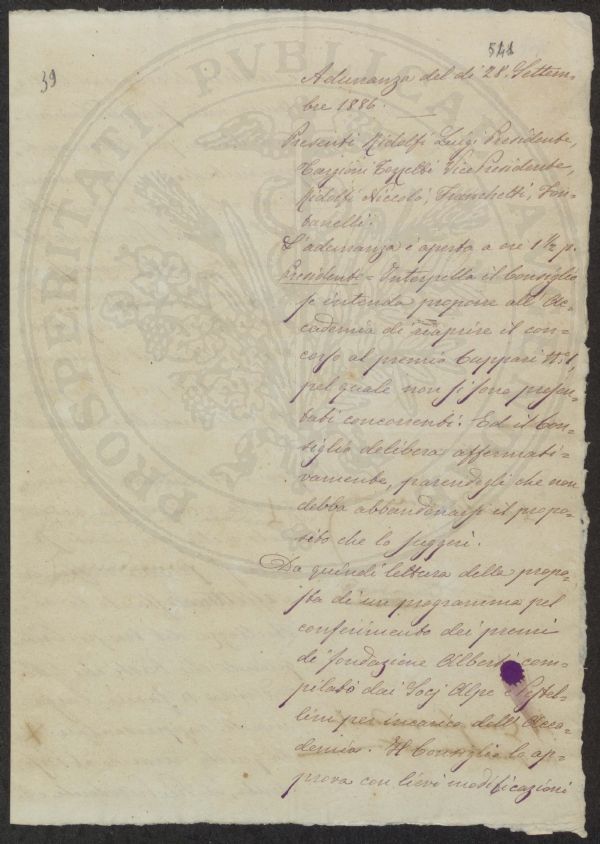 39
541
Adunanza del dì 28. Settem-
bre 1886.
Presenti Ridolfi Luigi Presidente,
Targioni Tozzetti Vice Presidente,
Ridolfi Niccolò, Franchetti, Fon-
tanelli.
L'adunanza è aperta a ore 1 ½ p.
Presidente = Interpella il Consiglio
se intenda proporre all'Ac-
cademia di riaprire il con-
corso al premio Cuppari N.º 1,
pel quale non si sono presen-
tati concorrenti: Ed il Con-
siglio delibera affermati-
vamente, parendogli che non
debba abbandonarsi il propo-
sito che lo suggerì.
Da quindi lettura della propo-
sta di un programma pel
conferimento dei premi
di fondazione Alberti com-
pilato dai Socj Alpe e
per incarico dell'Acca-
demia. Il Consiglio lo ap-
prova con lievi modificazioni
PROSPERITATI PVBLICAE